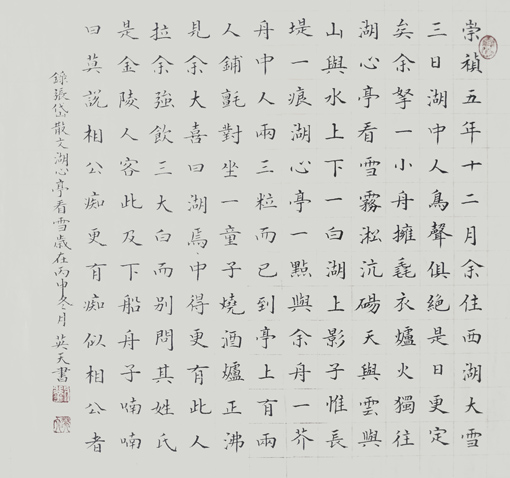 崇禎五年十二月余住西湖大雪
三日湖中人鳥聲俱絕是日更定
矣余拏一小舟擁毳衣爐火獨往
湖心亭看雪霧淞沆碭天與雲與
山與水上下一白湖上影子惟長
堤一痕湖心亭一點與余舟一芥
舟中人兩三粒而已到亭上有兩
人鋪氈對坐一童子燒酒爐正沸
見余大喜曰湖焉中得更有此人
拉余強飲三大白而別問其姓氏
是金陵人客此及下船舟子喃喃
曰莫說相公痴更有痴似相公者
錄張岱散文湖心亭看雪歲在丙申冬月英天書